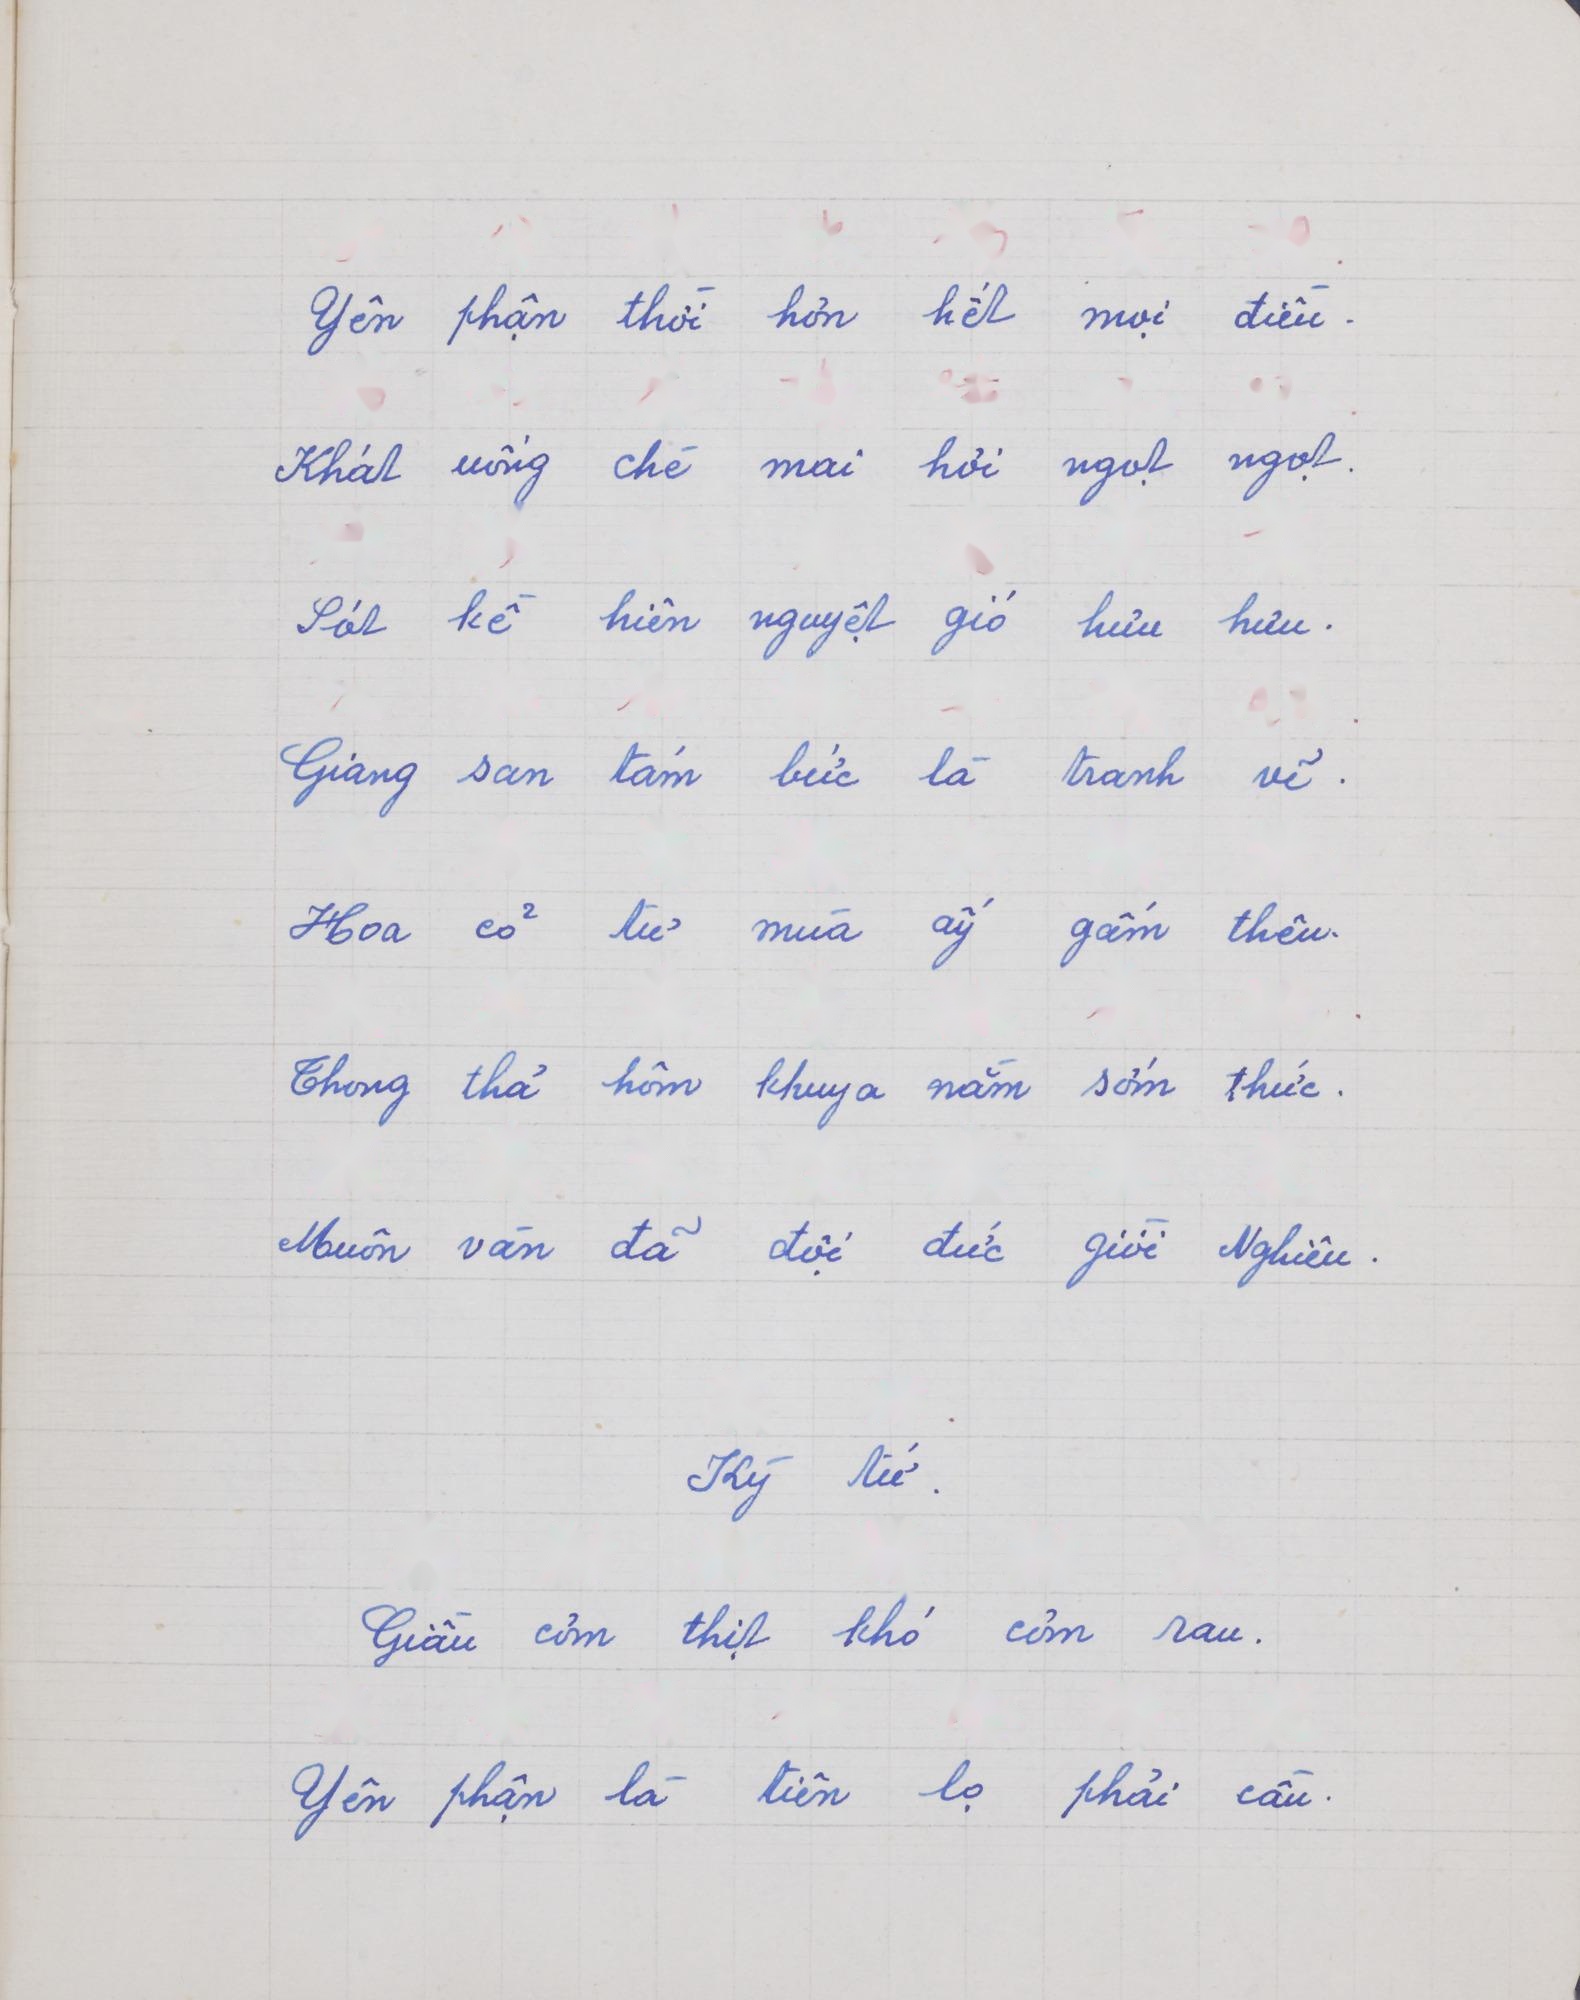 Yên phận thời hơn hết mọi điều.
Khát uống chè mai hơi ngọt ngọt.
Sốt kề hiên nguyệt gió hưu hưu.
Giang san tám bức là tranh vẽ.
Hoa cỏ tư mùa ấy gấm thêu.
Thong thả hôm khuya nằm sớm thức.
Muôn vàn đã đội đức giời Nghiêu.
Kỳ tứ.
Giầu cơm thịt khó cơm rau.
Yên phận là tiên lọ phải cầu.